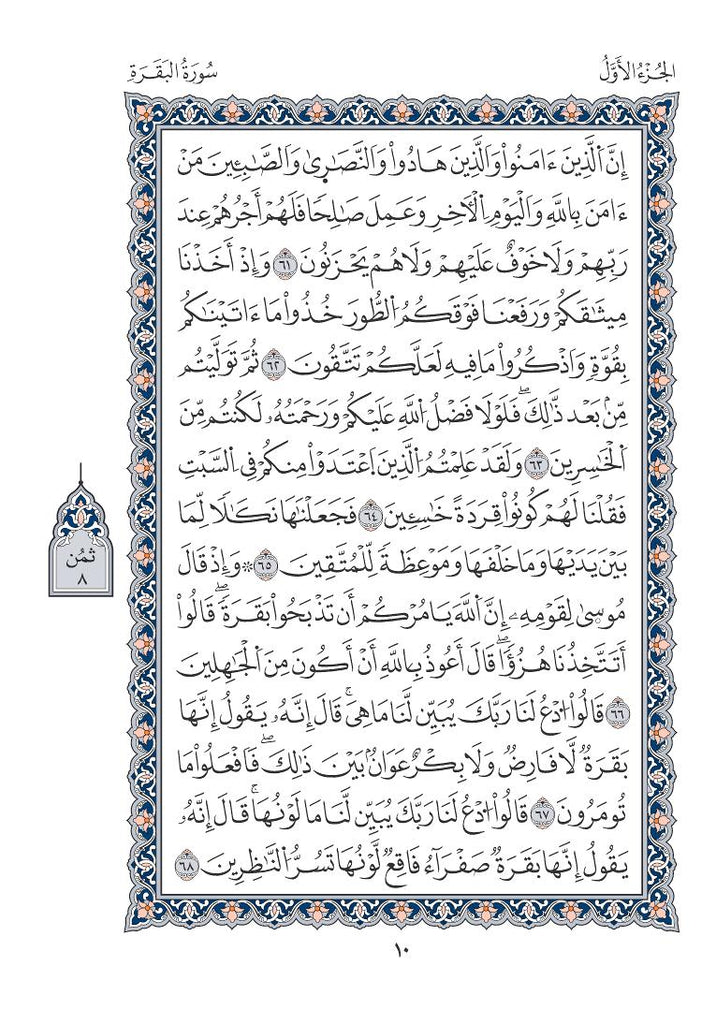 الجُزْءُ الأَوَّلُ
سُورَةُ البَقَرَةِ
إِنَّ اَ۬لذِينَ ءَامَنُواْ وَالذِينَ هَادُواْ وَالنَّصَٰر۪يٰ وَالصَّٰبِـِٕينَ مَنَ
ءَامَنَ بِاللَّهِ وَالْيَوْمِ اِ۬لْأٓخِرِ وَعَمِلَ صَٰلِحاٗ فَلَهُمْ أَجْرُهُمْ عِندَ
رَبِّهِمْ وَلَا خَوْفٌ عَلَيْهِمْ وَلَا هُمْ يَحْزَنُونَ ٦١ وَإِذْ أَخَذْنَا
مِيثَٰقَكُمْ وَرَفَعْنَا فَوْقَكُمُ اُ۬لطُّورَ خُذُواْ مَا ءَاتَيْنَٰكُم
بِقُوَّةٖ وَاذْكُرُواْ مَا فِيهِ لَعَلَّكُمْ تَتَّقُونَ ٦٢ ثُمَّ تَوَلَّيْتُم
مِّنۢ بَعْد ذَّٰلِكَۖ فَلَوْلَا فَضْلُ اُ۬للَّهِ عَلَيْكُمْ وَرَحْمَتُهُۥ لَكُنتُم مِّنَ
اَ۬لْخَٰسِرِينَ ٦٣ وَلَقَدْ عَلِمْتُمُ اُ۬لذِينَ اَ۪عْتَدَوْاْ مِنكُمْ فِي اِ۬لسَّبْتِ
فَقُلْنَا لَهُمْ كُونُواْ قِرَدَةً خَٰسِـِٕينَ ٦٤ فَجَعَلْنَٰهَا نَكَٰلاٗ لِّمَا
بَيْنَ يَدَيْهَا وَمَا خَلْفَهَا وَمَوْعِظَةٗ لِّلْمُتَّقِينَ ٦٥ ۞ وَإِذْ قَالَ
مُوس۪يٰ لِقَوْمِهِۦ إِنَّ اَ۬للَّهَ يَامُرْكُمْ أَن تَذْبَحُواْ بَقَرَةٗۖ قَالُواْ
أَتَتَّخِذُنَا هُزُؤاٗۖ قَالَ أَعُوذُ بِاللَّهِ أَنْ أَكُونَ مِنَ اَ۬لْجَٰهِلِينَ
٦٦ قَالُواْ اُ۟دْعُ لَنَا رَبَّكَ يُبَيِّن لَّنَا مَا هِيَۚ قَالَ إِنَّهُۥ يَقُولُ إِنَّهَا
بَقَرَةٞ لَّا فَارِضٞ وَلَا بِكْرٌ عَوَانُۢ بَيْنَ ذَٰلِكَۖ فَافْعَلُواْ مَا
تُومَرُونَ ٦٧ قَالُواْ اُ۟دْعُ لَنَا رَبَّكَ يُبَيِّن لَّنَا مَا لَوْنُهَاۚ قَالَ إِنَّهُۥ
يَقُولُ إِنَّهَا بَقَرَةٞ صَفْرَآءُ فَاقِعٞ لَّوْنُهَا تَسُرُّ اُ۬لنَّٰظِرِينَ ٦٨
ثمُن
٨
١٠